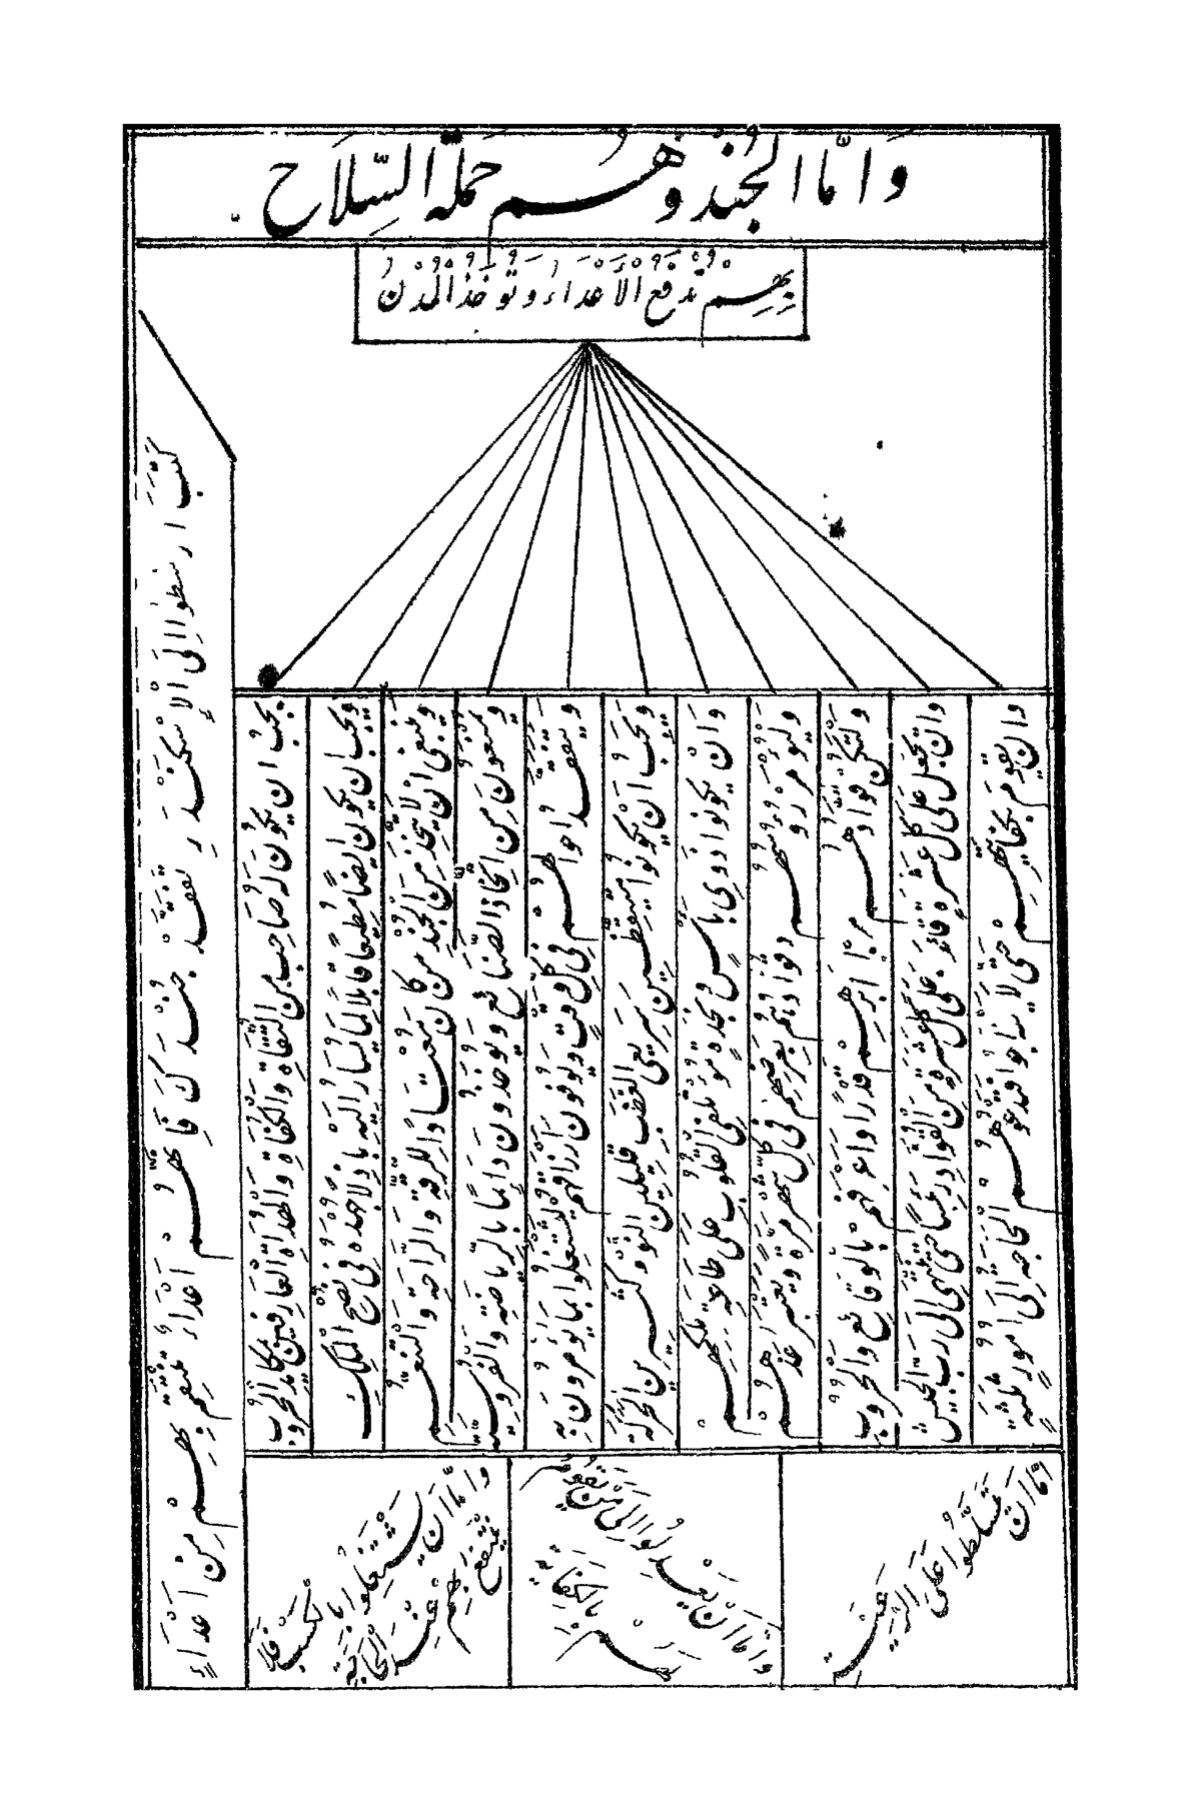 وَأَمَّا الْجُنْدُ وَهُمْ حَمَلَةُ السِّلَاحِ
بِهِمْ تُدْفَعُ الْأَعْدَاءُ وَتُؤْخَذُ الْمُدُنُ
كتب ارسطوا الى الاسكندر تفقد جندك فانهم اعداء ينتقم بهم من اعداء
يجب ان يكون له صاحب من الثقاة والكفاة والهداة العارفين بمكايد الحروب
ويجب ان يكون ايضا مطيعا قابلا لما يشار اليه باذلا جهده في نصح الملك
وينبغي ان لا يتخذ من الجند من كان للرفه والراحة والتنعم
ويمنعون من اتخاذ الصنايع ويؤخذون دائما بالرياضة والفروسية
ويتفقد احوالهم في كل وقت ويوفون ارزاقهم ليشتغلوا بما يؤمرون به
ويجب ان يكونوا متيقظين سريعي الغضب قليلين كثيرين الحركة
وان يكونوا ذوي بأس ونجدة مؤتلفي القلوب على طاعة ملكهم
وليؤمر رؤسهم وقوادهم بعرضهم في كل شهر مرة ويعتبر
ولتكن قوادهم من اكابرهم قدرا واعرفهم بالوقائع والحروب
وان يجعل على كل عشرة قائد وعلى كل عشرة من القواد رئيسا حتى ينتهى الى رب الجيش
وان يقوم بكفايتهم حتى لا يحتاجوا فتدعوهم الحاجة الى امور ثلثة
اما ان يتسلطوا على الرعية
واما ان يعدلوا الى من يقوم لهم بالكفاية
واما ان يشتغلوا بالكسب فلا ينتفع بهم عند الحاجة